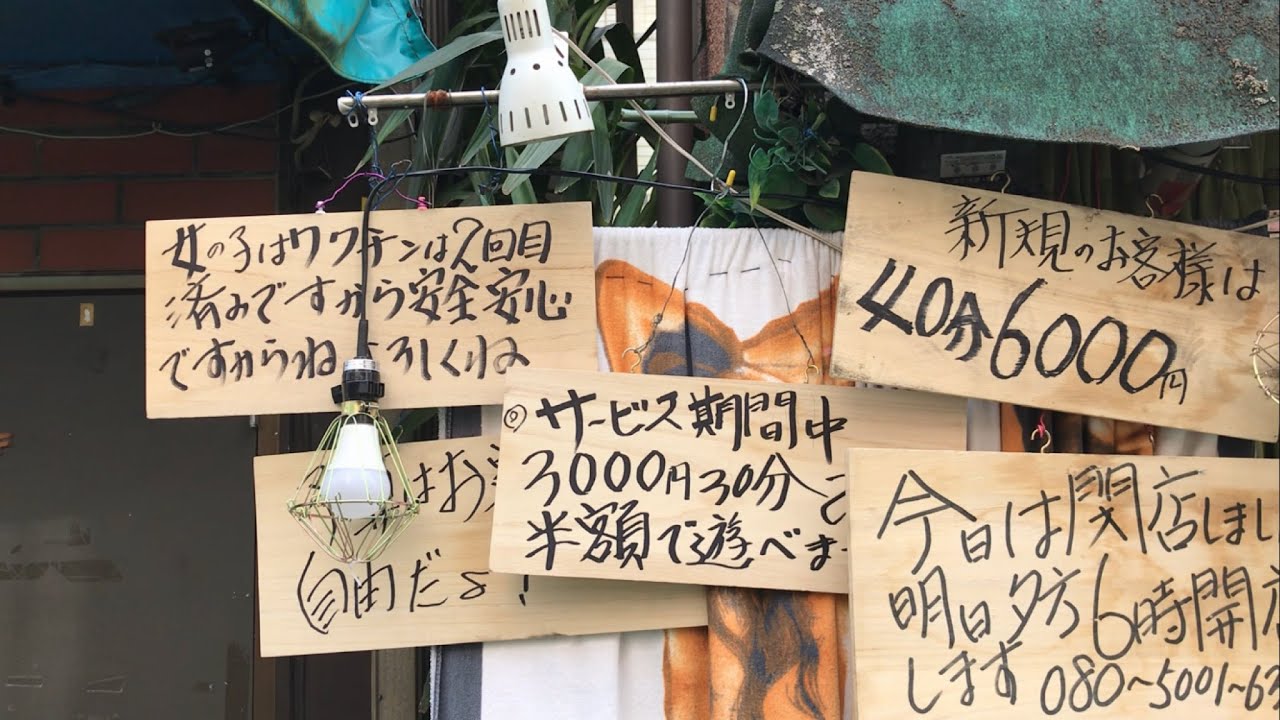 女の子はワクチンは2回目
済みですから安全安心
ですからねよろしくね
新規のお客様は
40分6000円
◎サービス期間中
3000円30分
半額で遊べま
はお
自由だよ!
今日は閉店しまし
明日夕方6時開店
します 080~5001~63